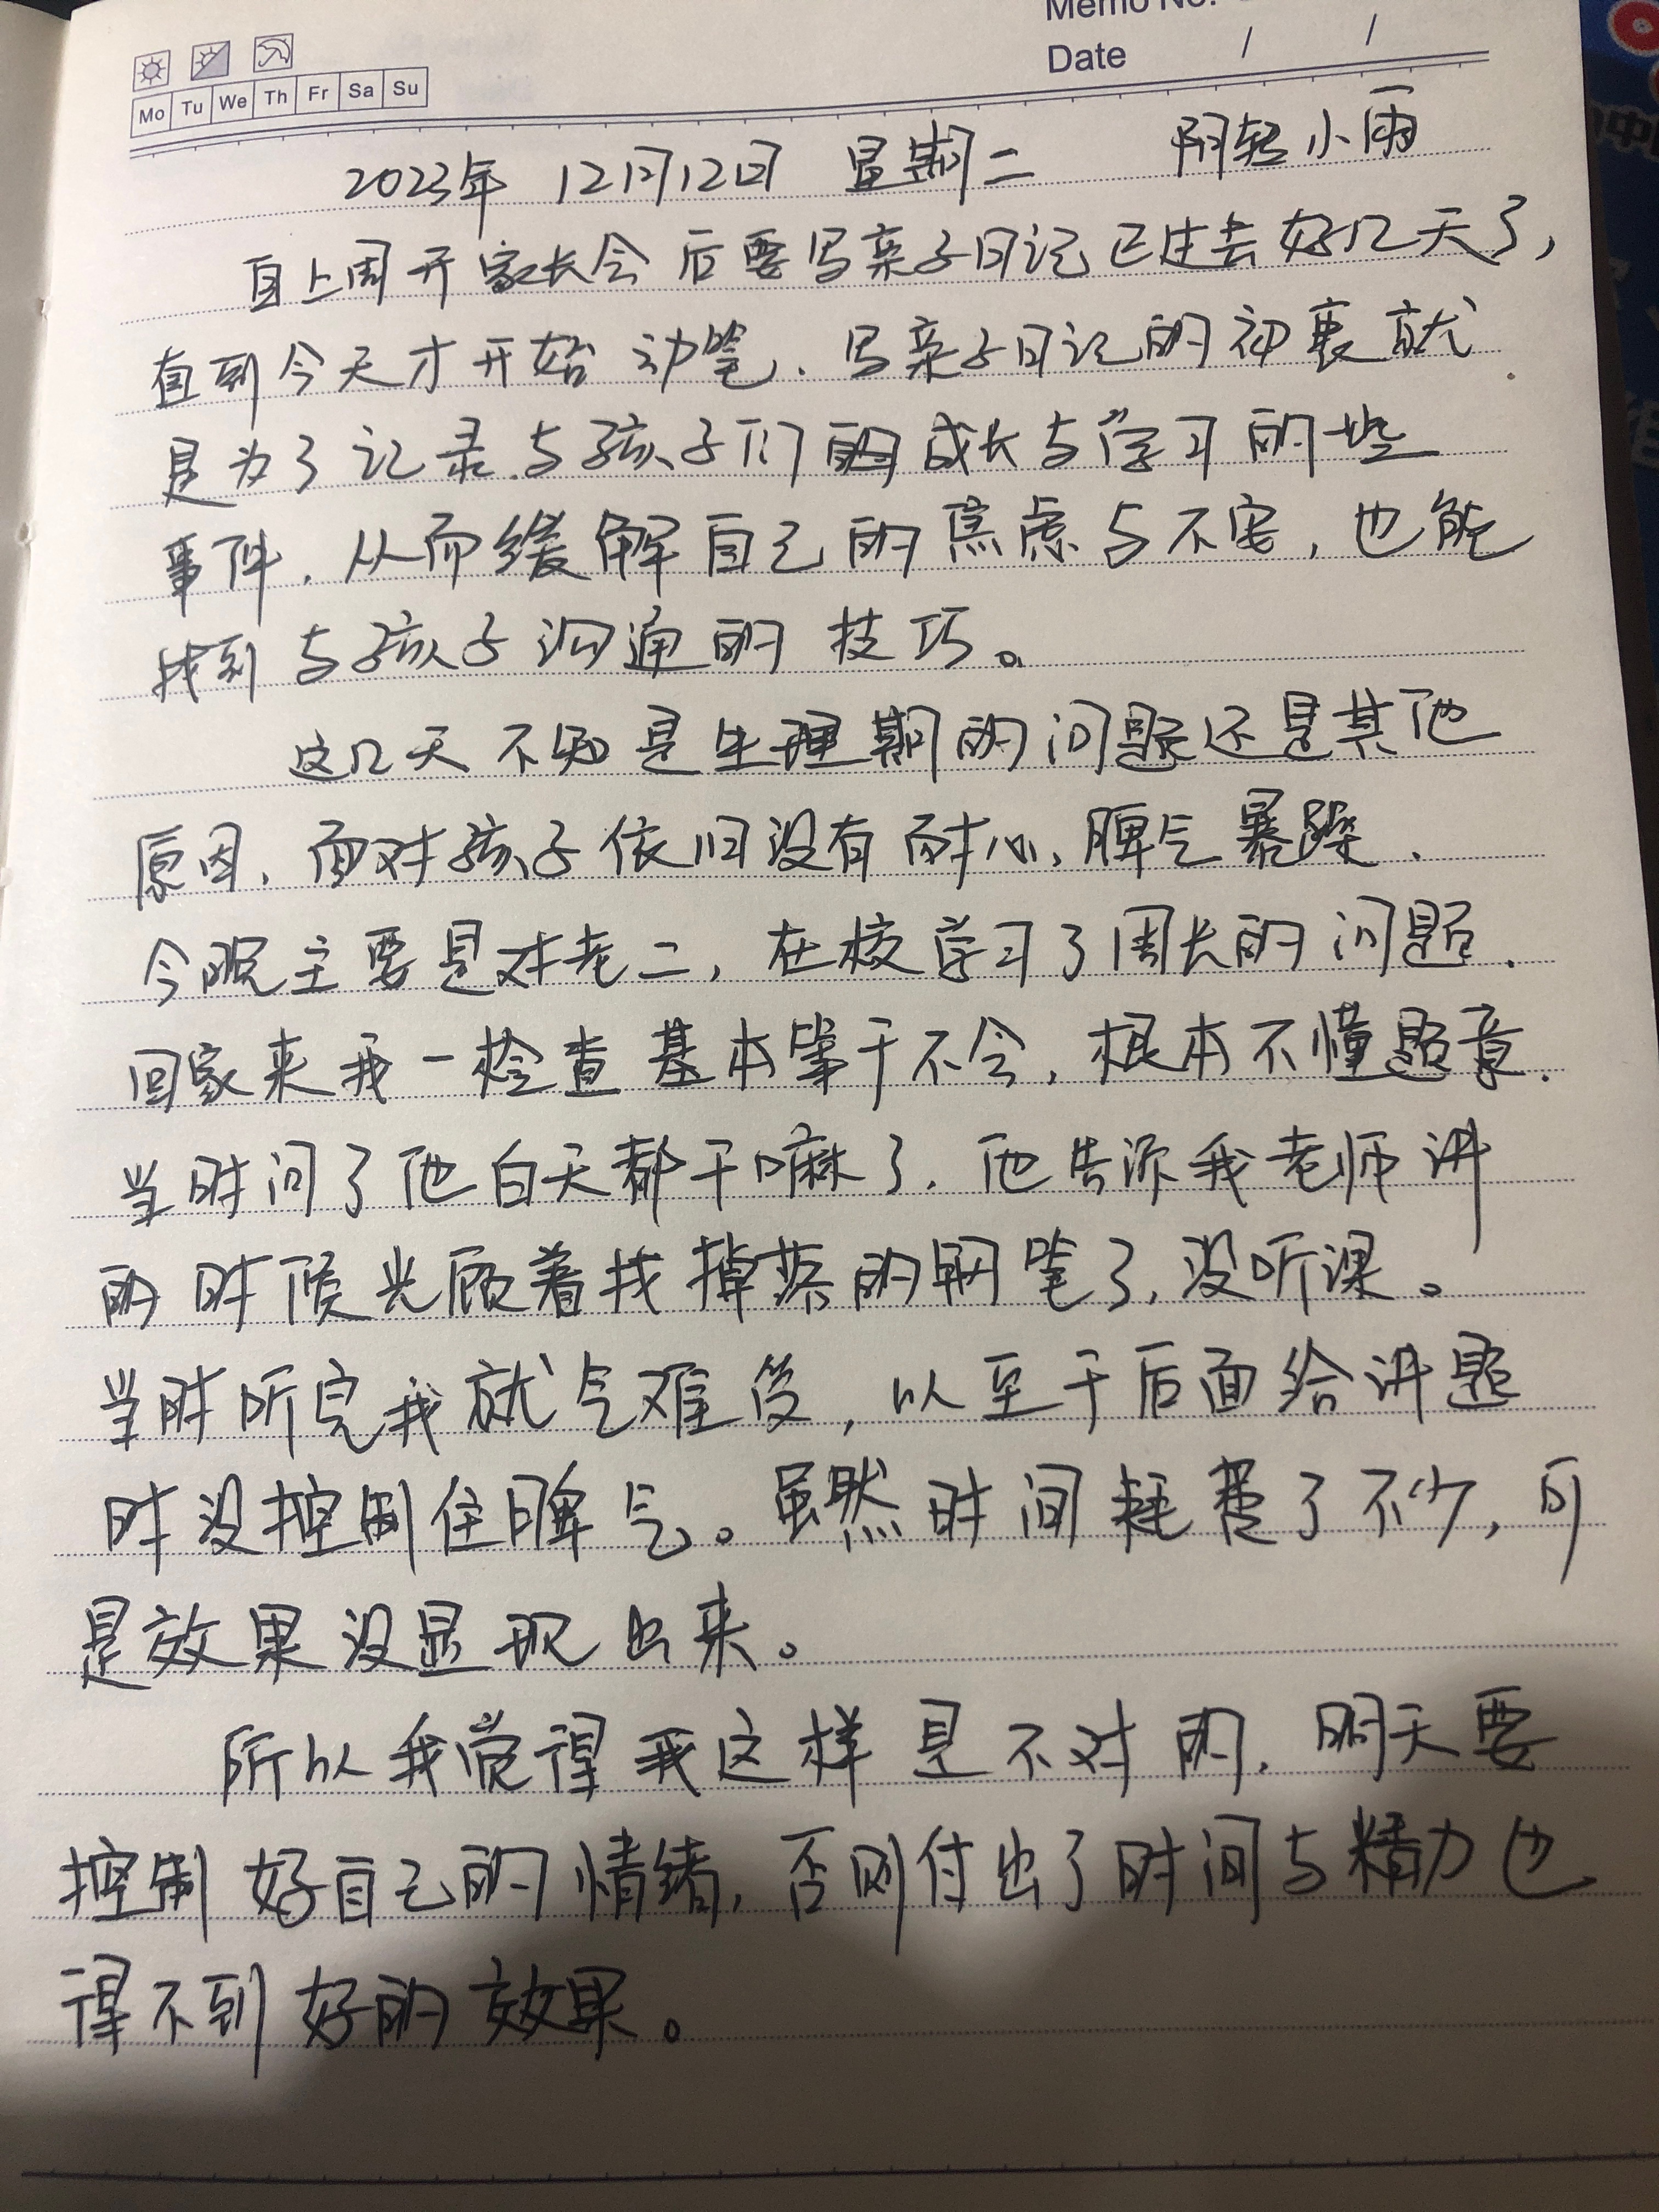 Memo No.
Date / /
Mo Tu We Th Fr Sa Su
2023年 12月12日 星期二 阴转小雨
自上周开家长会后要写亲子日记已过去好几天了,
直到今天才开始动笔.写亲子日记的初衷就
是为了记录与孩子们的成长与学习的些
事件.从而缓解自己的焦虑与不安,也能
找到与孩子沟通的技巧。
这几天不知是生理期的问题还是其他
原因.面对孩子依旧没有耐心、脾气暴躁.
今晚主要是对老二,在校学习了周长的问题.
回家来我一检查基本等于不会,根本不懂题意.
当时问了他白天都干嘛了.他告诉我老师讲
的时候光顾着找掉落的钢笔了,没听课。
当时听完我就气难受,以至于后面给讲题
时没控制住脾气。虽然时间耗费了不少,可
是效果没显现出来。
所以我觉得我这样是不对的.明天要
控制好自己的情绪,否则付出了时间与精力也
得不到好的效果。